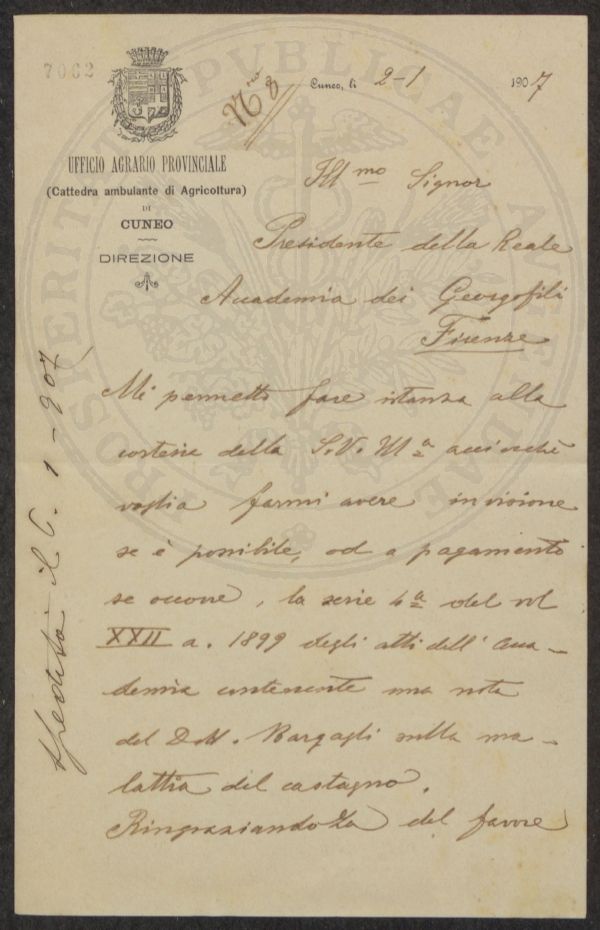 7062
Nro 8
Cuneo, li 2-1 1907
UFFICIO AGRARIO PROVINCIALE
(Cattedra ambulante di Agricoltura)
DI
CUNEO
DIREZIONE
Illmo Signor
Presidente della Reale
Accademia dei Georgofili
Firenze
Mi permetto fare istanza alla
cortesia della S.V. Illa acciocchè
voglia farmi avere in visione
se è possibile, od a pagamento
se occorre, la serie 4a del vol
XXII a. 1899 degli atti dell' Acca-
demia contenente una nota
del Dott. Bargagli sulla ma-
lattia del castagno.
RingraziandoLa del favore
spedita il 6. 1 - 907